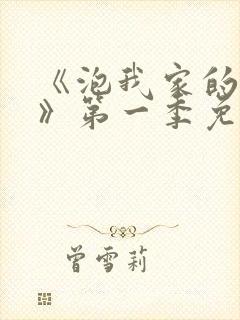 《泡我家的
》第一季免
曾雪莉